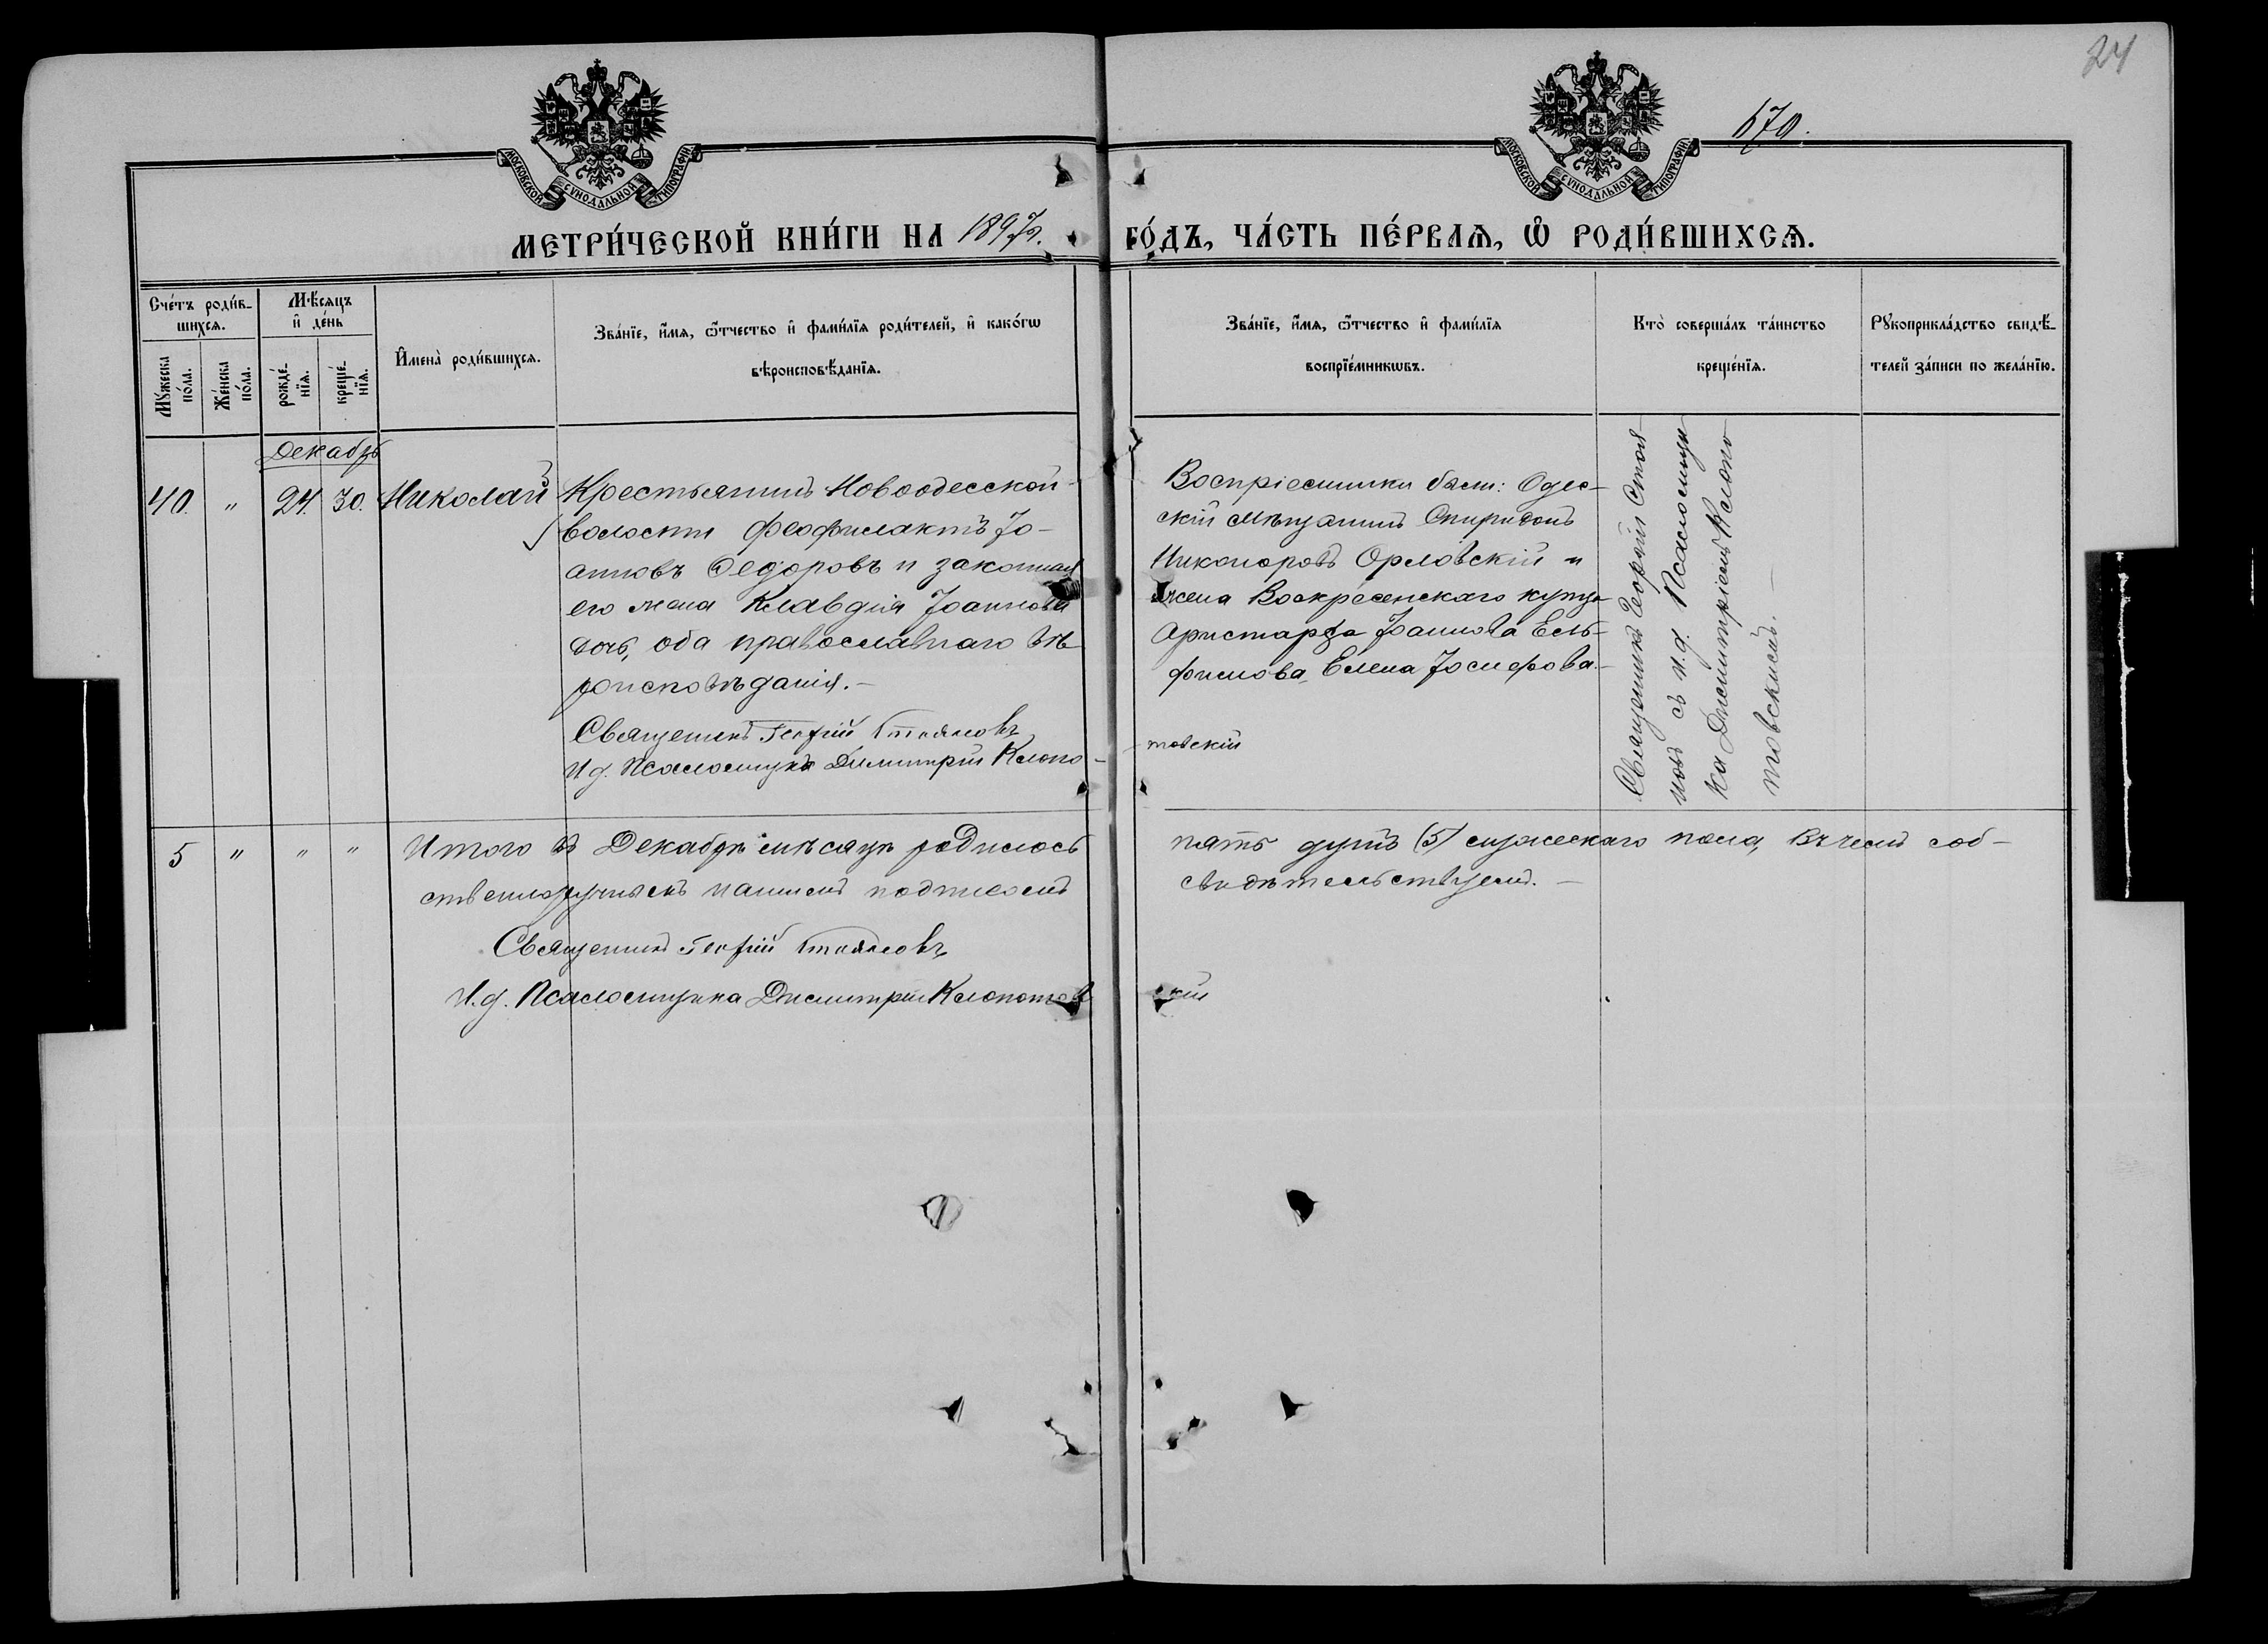 24
670.
МОСКОВСКОЙ СѴНОДАЛЬНОЙ ТИПОГРАФІИ
МОСКОВСКОЙ СѴНОДАЛЬНОЙ ТИПОГРАФІИ
МЕТРИ́ЧЕСКОЙ КНИ́ГИ НА 1897. ГО́ДЪ, ЧА́СТЬ ПЕ́РВАѦ, Ѡ РОДИ́ВШИХСѦ.
Сче́тъ роди́в-
шихсѧ.
Мꙋ́жеска по́ла.
Же́нска по́ла.
Мѣ́сѧцъ
и҆ де́нь
рожде́-
нїѧ.
креще́-
нїѧ.
И҆мена̀ роди́вшихсѧ.
Зва́нїе, и҆́мѧ, ѻ҆́тчество и҆ фами́лїѧ роди́телей, и҆ како́гѡ
вѣроисповѣ́данїѧ.
Зва́нїе, и҆́мѧ, ѻ҆́тчество и҆ фами́лїѧ
воспрїе́мникѡвъ.
Кто̀ соверша́лъ та́инство
креще́нїѧ.
Рꙋкоприкла́дство свидѣ́-
телей за́писи по жела́нїю.
Декабрь
40. " 24. 30. Николай
Крестьянинъ Новоодесской
волости Феофилактъ Іо-
анновъ Федоровъ и законная
его жена Клавдія Іоаннова
дочь, оба православнаго вѣ-
роисповѣданія.-
Священникъ Георгій Стояновъ
И.д. Псаломщика Димитрій Клопо-
товскій
Воспріемники были: Одес-
скій мѣщанинъ Спиридонъ
Никоноровъ Орловскій и
жена Воскресенскаго купца
Аристарха Іоаннова Ель-
фимова, Елена Іосифова.-
Священникъ Георгій Стоя-
новъ съ и.д. Псаломщи-
ка Димитріемъ Клопо-
товскимъ.
5 " " " Итого въ Декабрѣ мѣсяцѣ родилось пять душъ (5) мужескаго пола, въ чемъ соб-
ственноручнымъ нашимъ подписомъ свидѣтельствуемъ.-
Священникъ Георгій Стояновъ
И.д. Псаломщика Димитрій Клопотовскій